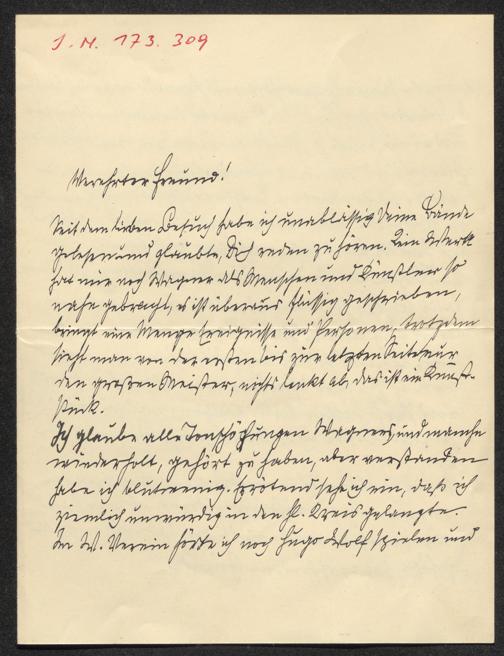 J. N. 173.309
Verehrter Freund!
Seit dem lieben Besuch habe ich unablässig Deine Bände
gelesen und glaubte, Dich reden zu hören. Kein Werk
hat mir noch Wagner als Menschen und Künstler so
nahe gebracht, es ist überaus flüssig geschrieben,
bringt eine Menge Ereignisse und Personen, trotzdem
sieht man von der ersten bis zur letzten Seite nur
den großen Meister, nichts lenkt ab, das ist ein Kunst-
stück.
Ich glaube alle Tonschöpfungen Wagners, und manche
wiederholt, gehört zu haben, aber verstanden
habe ich blutwenig. Errötend sehe ich ein, daß ich
ziemlich unwürdig in den hl. Kreis gelangte.
Im W. Verein hörte ich noch Hugo Wolf spielen und